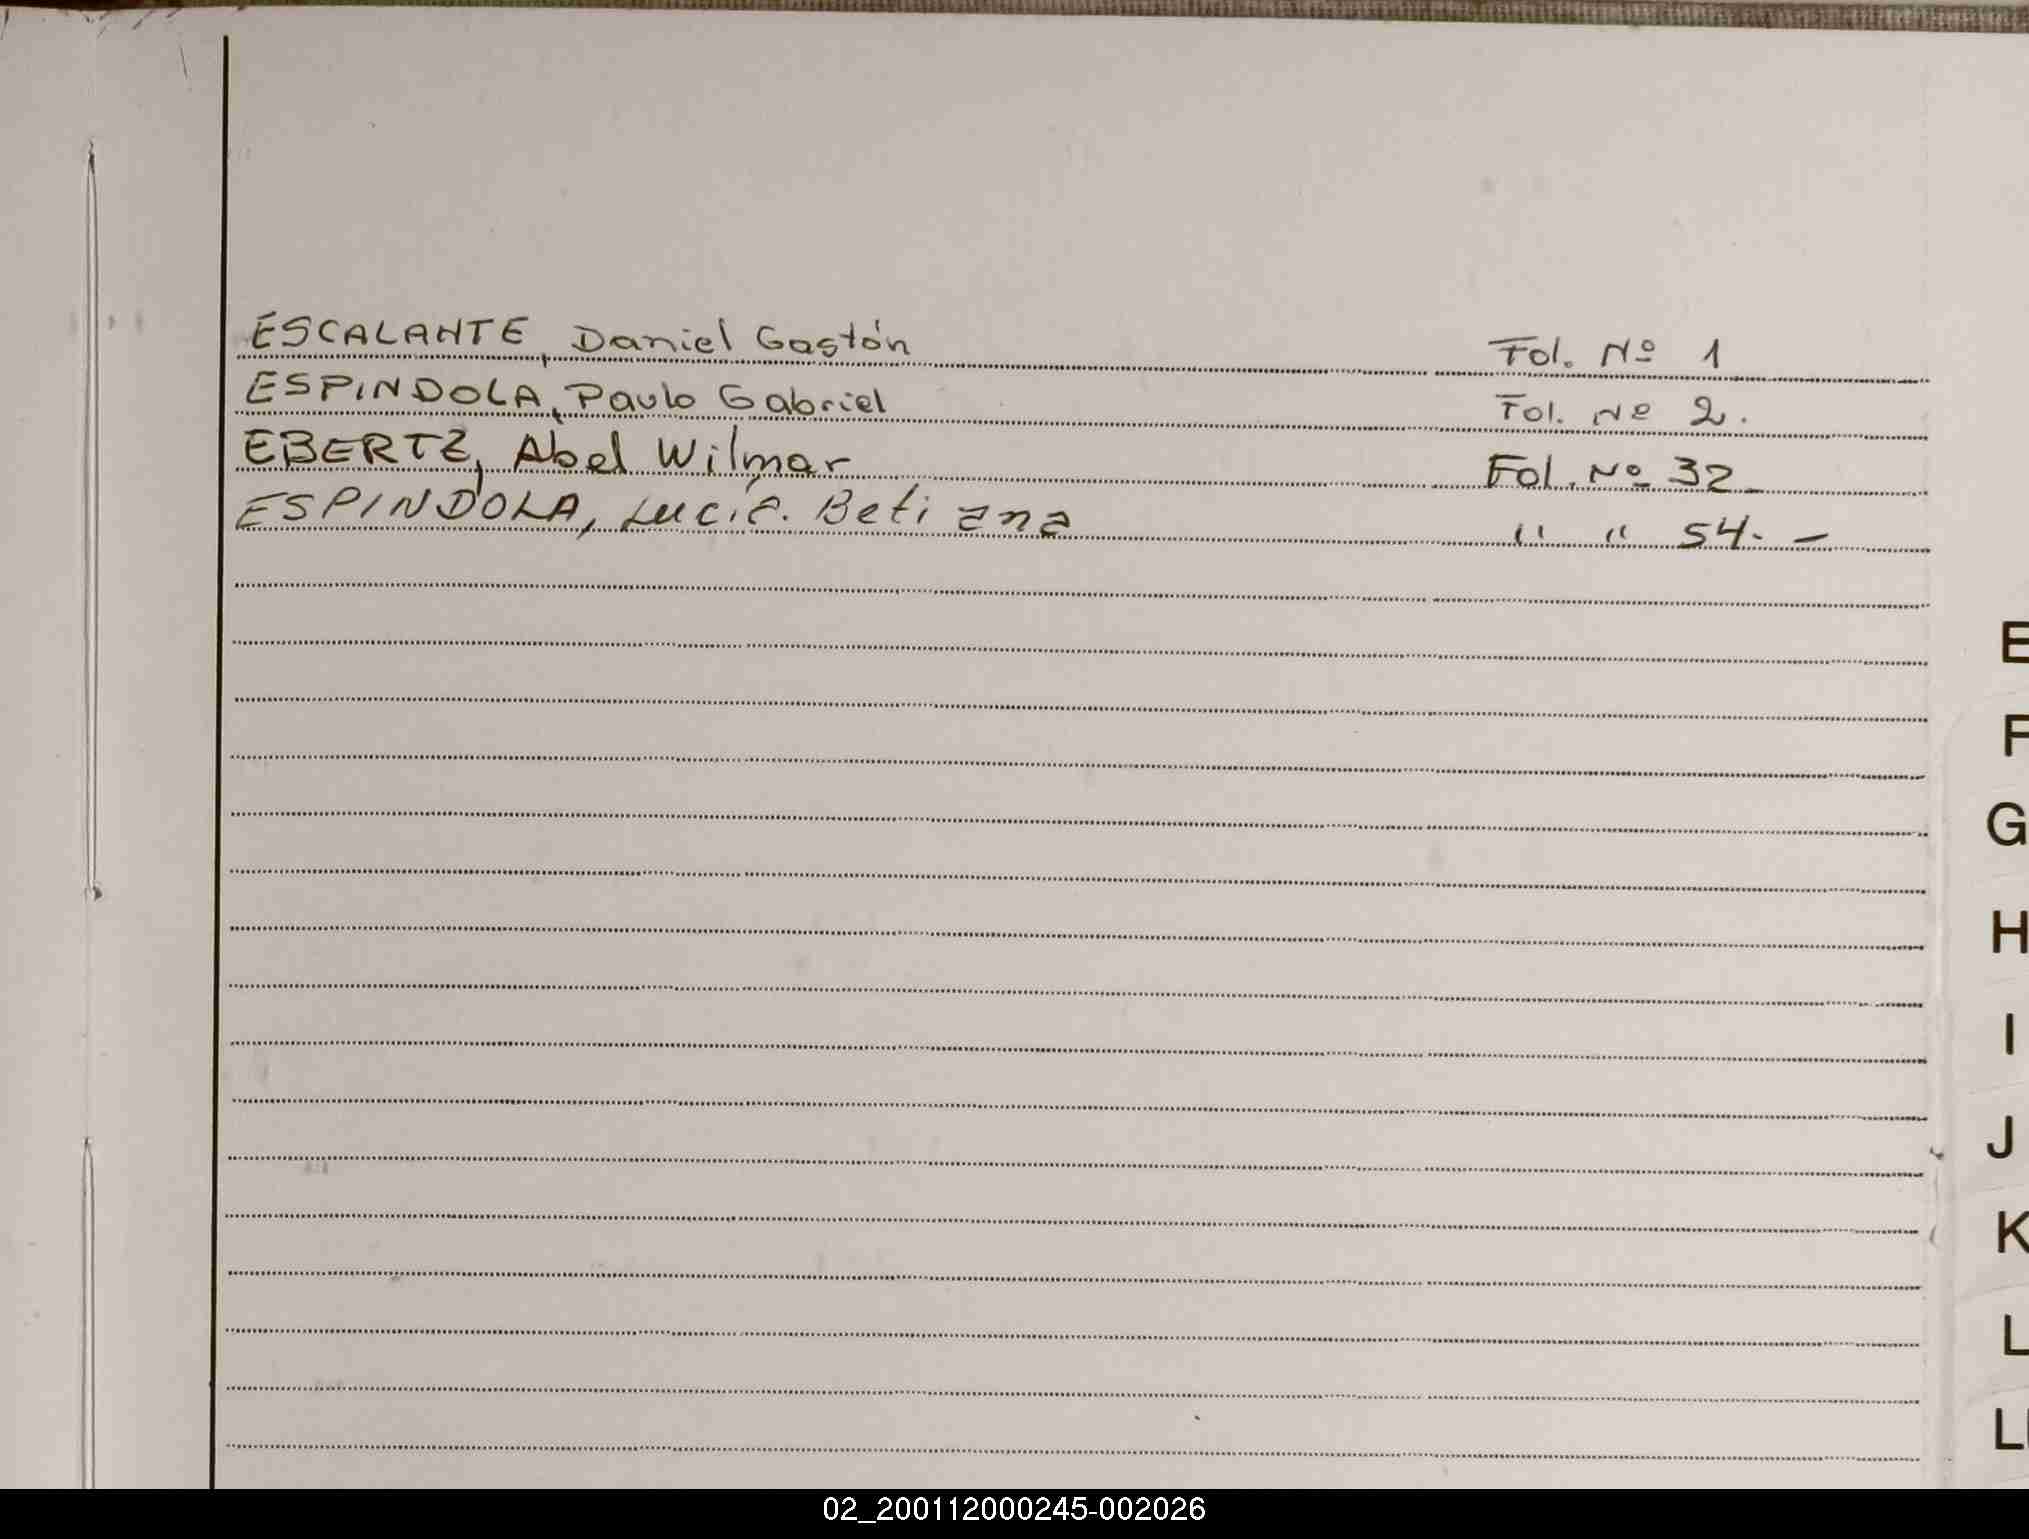 ESCALANTE, Daniel Gastón Fol. Nº 1
ESPINDOLA, Paulo Gabriel Fol. Nº 2.
EBERTZ, Abel Wilmar Fol. Nº 32_
ESPINDOLA, Lucía. Betiana " " 54. -
E
F
G
H
I
J
K
L
02_200112000245-002026